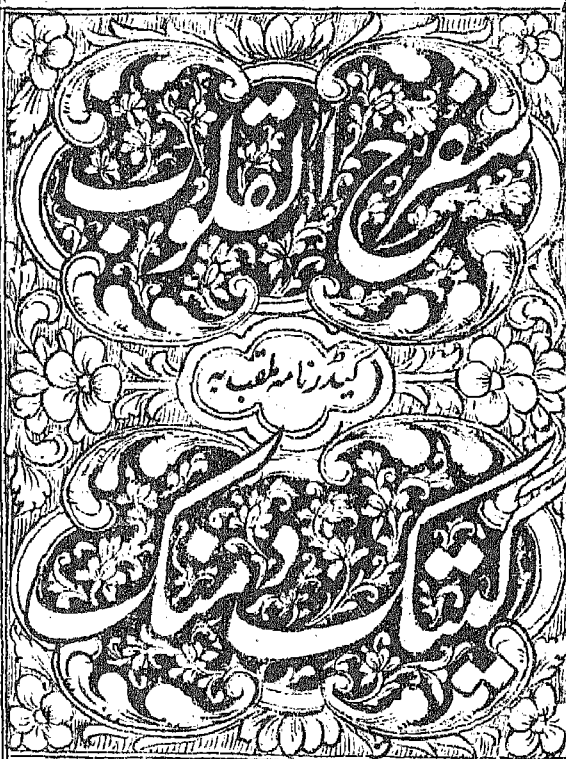 مفرح القلوب
گیدڑ نامہ ملقب بہ
کیتک دمنک